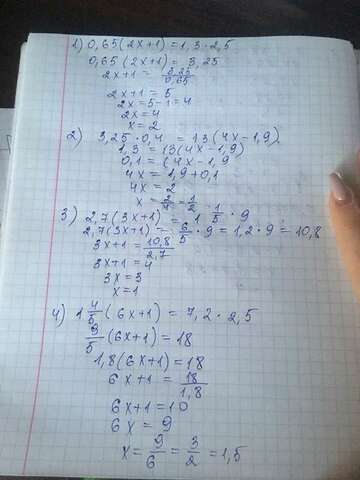 1) 0,65(2x+1)=1,3·2,5
0,65(2x+1)= 3,25
2x+1= 3,25/0,65
2x+1= 5
2x=5-1=4
2x=4
x=2
2) 3,25·0,4 =13(4x-1,9)
1,3=13(4x-1,9)
0,1=(4x-1,9
4x=1,9+0,1
4x=2
x=2/4=1/2
3) 2,7(3x+1)= 1 1/5 · 9
2,7(3x+1)= 6/5 · 9=1,2·9=10,8
3x+1= 10,8/2,7
3x+1=4
3x=3
x=1
4) 1 4/5 (6x+1)=7,2·2,5
9/5 (6x+1)=18
1,8(6x+1)=18
6x+1= 18/1,8
6x+1=10
6x= 9
x= 9/6 = 3/2 =1,5